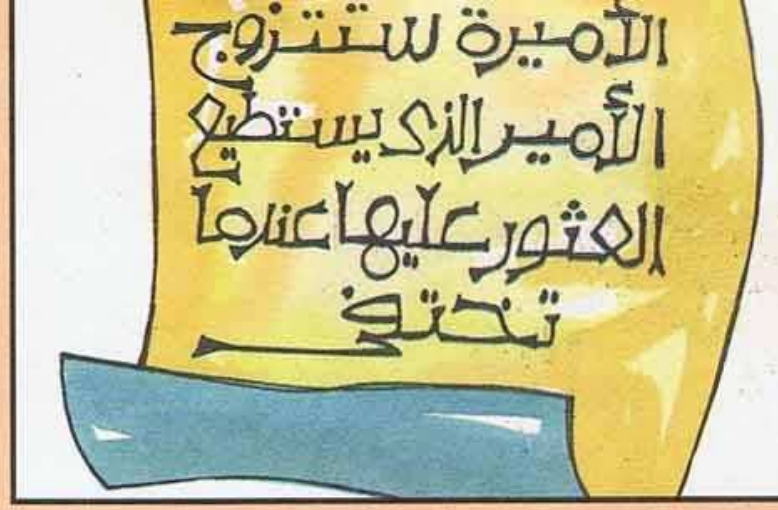 الأميرة ستتزوج
الأمير الذى يستطيع
العثور عليها عندما
تختفى